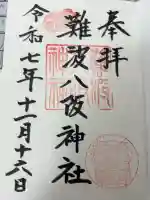 奉拝
難波八阪神社
令和七年十二月十六日